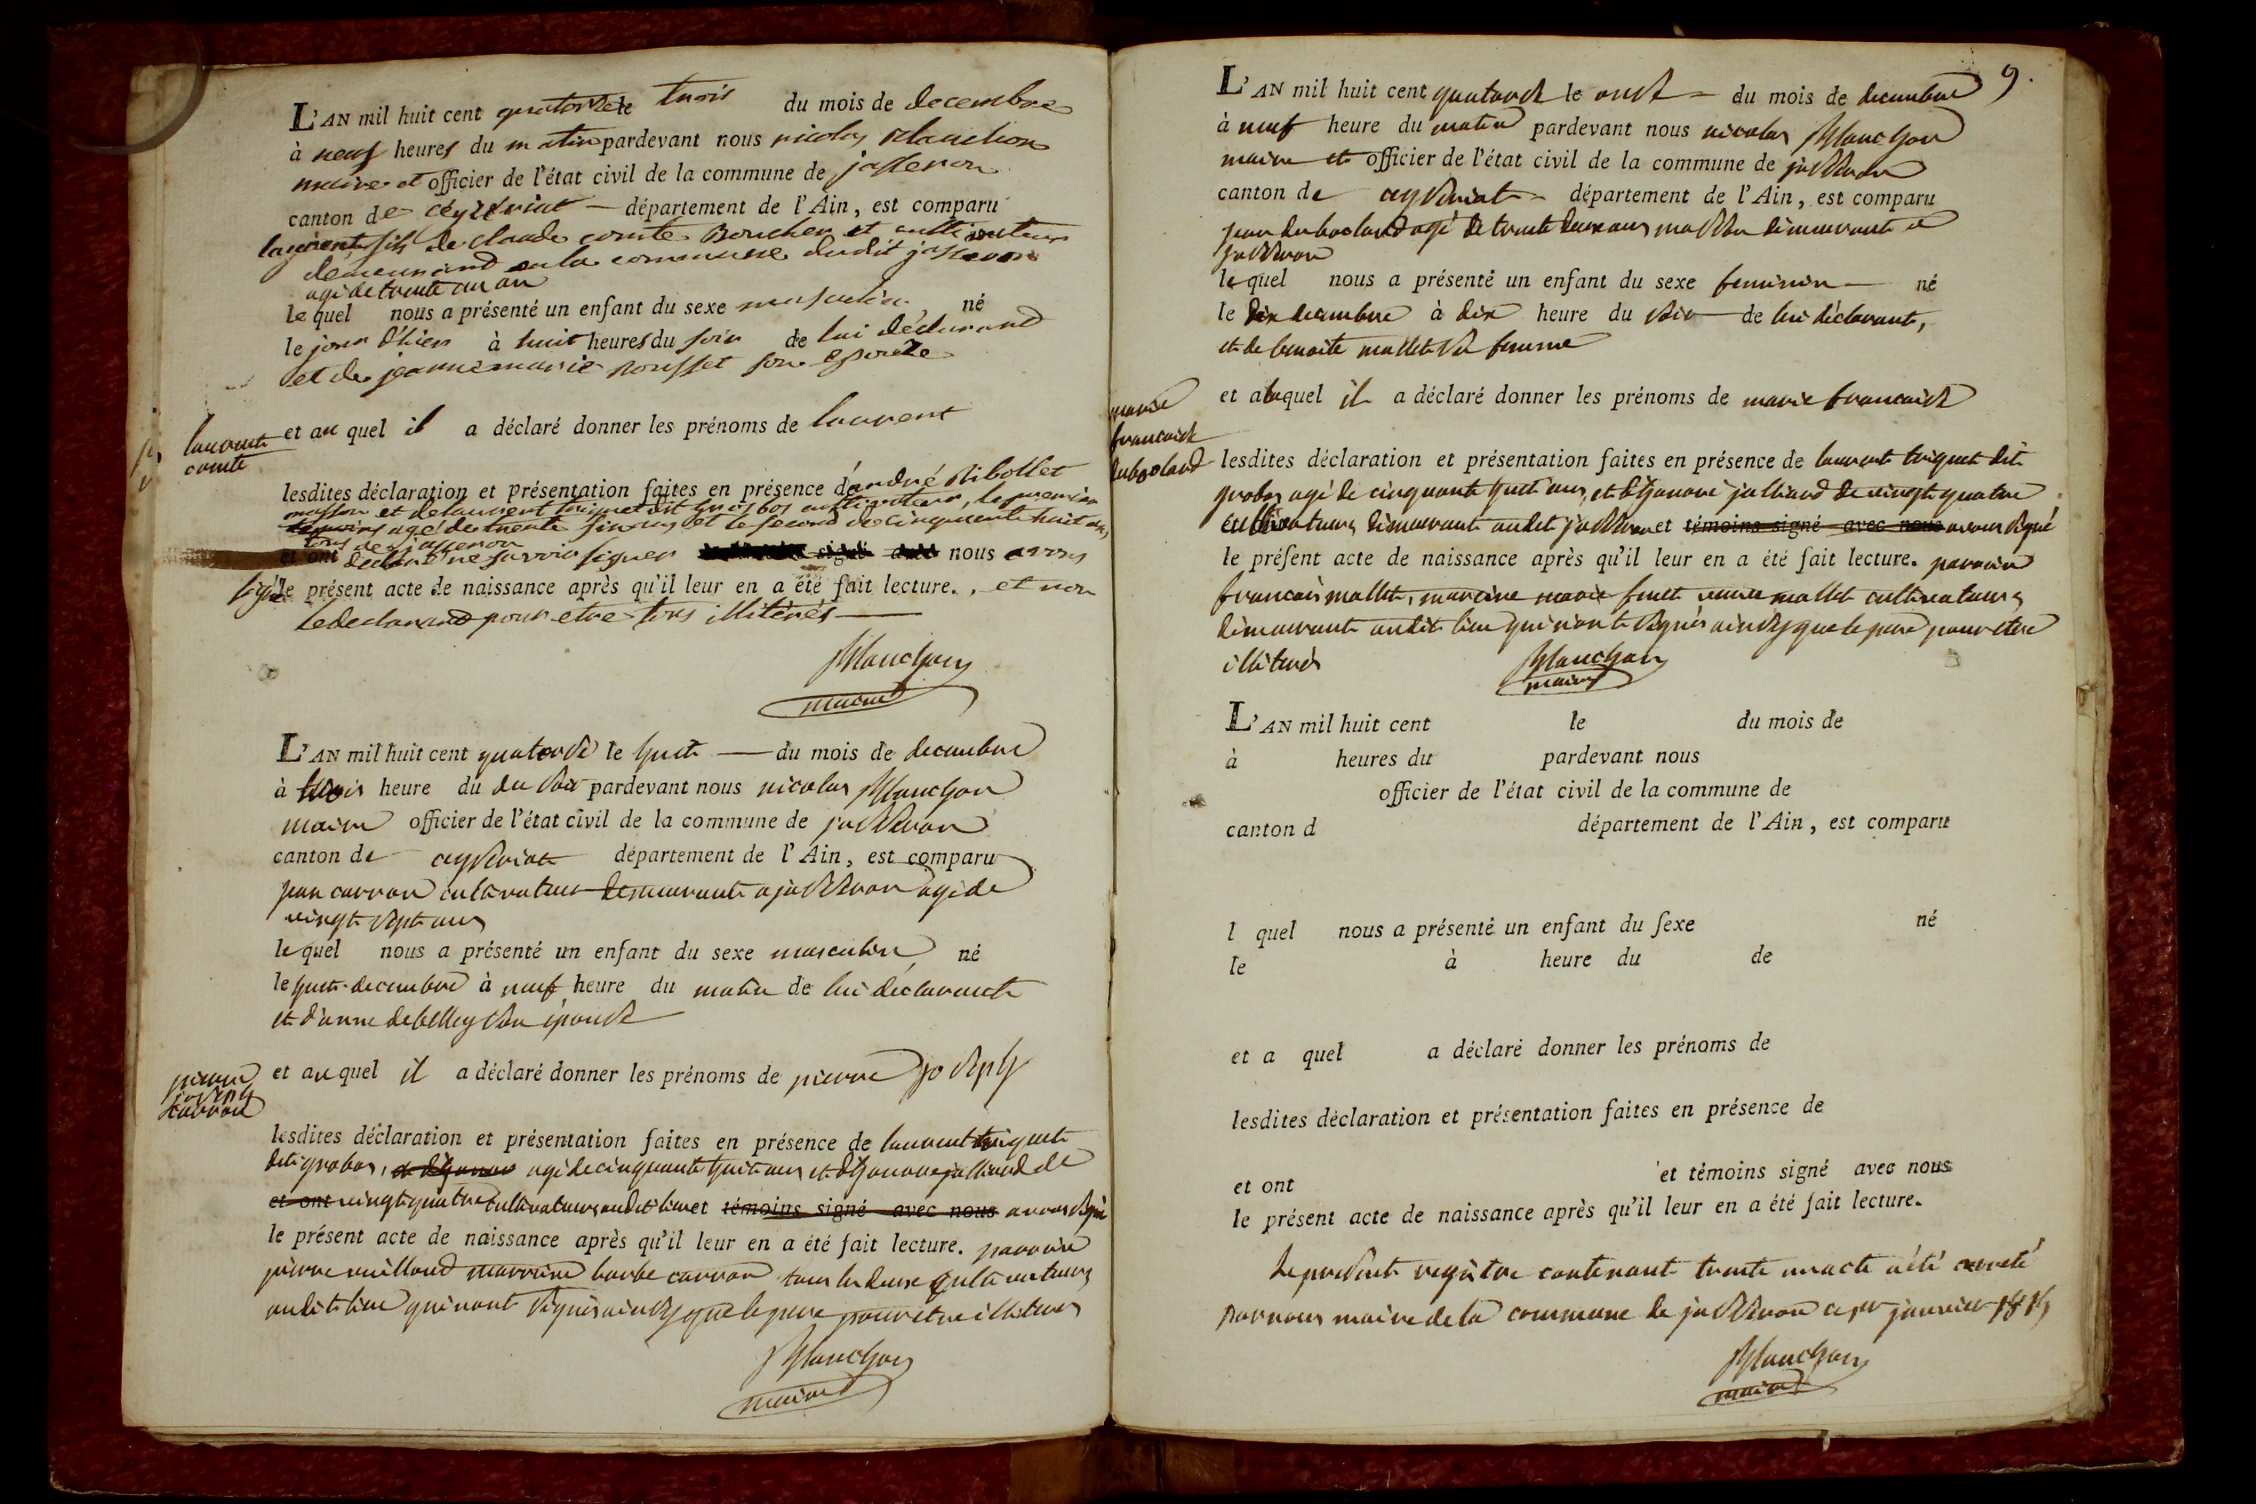 L'AN mil huit cent quatorze le trois du mois de decembre
à neuf heures du matin pardevant nous nicolas Planchon
maire et officier de l'état civil de la commune de jasseron
canton de ceyzeriat département de l'Ain, est comparu
laurent fils de claude comte Boucher et cultivateur
demeurand en la commune dudit jasseron
agé de trente un an
le quel nous a présenté un enfant du sexe masculin né
le jour d'hier à huit heures du soir de lui déclarand
et de jeanne marie rousset son epouze
laurent
comte
et au quel il a déclaré donner les prénoms de laurent
lesdites déclaration et présentation faites en présence d'andré Ribollet
masson et de laurent triquet dit grosbos cultivateur, le premier
temoins agé de trente six ans et le second de cinquante huit ans
tous de jasseron
et ont déclaré ne savoir signer signé avec nous avons
signé le présent acte de naissance après qu'il leur en a été fait lecture., et non
le declarand pour etre tous illiterés
Planchon
maire
L'AN mil huit cent quatorse le huit du mois de decembre
à trois heure du du soir pardevant nous nicolas Planchon
maire officier de l'état civil de la commune de jasseron
canton de ceyseriat département de l'Ain, est comparu
jean carron cultivateur demeurant a jasseron agé de
vingt sept ans
le quel nous a présenté un enfant du sexe masculin né
le huit decembre à neuf heure du matin de lui déclarant
et d'anne debelley son épouse
pierre
joseph
carron
et au quel il a déclaré donner les prénoms de pierre joseph
lesdites déclaration et présentation faites en présence de laurent triquet
dit grobos, agé de cinquante huit ans et d'honoré jolliard de
et ont vingt quatre cultivateurs audit lieu et témoins signé avec nous avons signé
le présent acte de naissance après qu'il leur en a été fait lecture. parrain
pierre vuilloud marraine barbe carron tous les deux cultivateurs
audit lieu qui n'ont signés ainsy que le pere pour etre illiteres
Planchon
maire
9.
L'AN mil huit cent quatorse le onse du mois de decembre
à neuf heure du matin pardevant nous nicolas Planchon
maire et officier de l'état civil de la commune de jasseron
canton de ceyseriat département de l'Ain, est comparu
jean dubooland agé de trente deux ans masson demeurant a
jasseron
le quel nous a présenté un enfant du sexe feminin né
le dix decembre à dix heure du soir de lui déclarant,
et de benoite mallet sa femme
marie
francoise
dubooland
et a laquel il a déclaré donner les prénoms de marie francoise
lesdites déclaration et présentation faites en présence de laurent triquet dit
grobos agé de cinquante huit ans, et d'honoré jolliard de vingt quatre
cultivateurs demeurant audit jasseron et témoins signé avec nous avons signé
le présent acte de naissance après qu'il leur en a été fait lecture. parrain
francois mallet, marraine marie finet veuve mallet cultivateurs
demeurant audit lieu qui n'ont signés ainsy que le pere pour etre
illiterés
Planchon
maire
L'AN mil huit cent le du mois de
à heures du pardevant nous
officier de l'état civil de la commune de
canton d département de l'Ain, est comparu
l quel nous a présenté un enfant du sexe né
le à heure du de
et a quel a déclaré donner les prénoms de
lesdites déclaration et présentation faites en présence de
et ont et témoins signé avec nous
le présent acte de naissance après qu'il leur en a été fait lecture.
Le present registre contenant trente un acte a été arreté
par nous maire de la commune de jasseron ce 1er janvier 1815
Planchon
maire